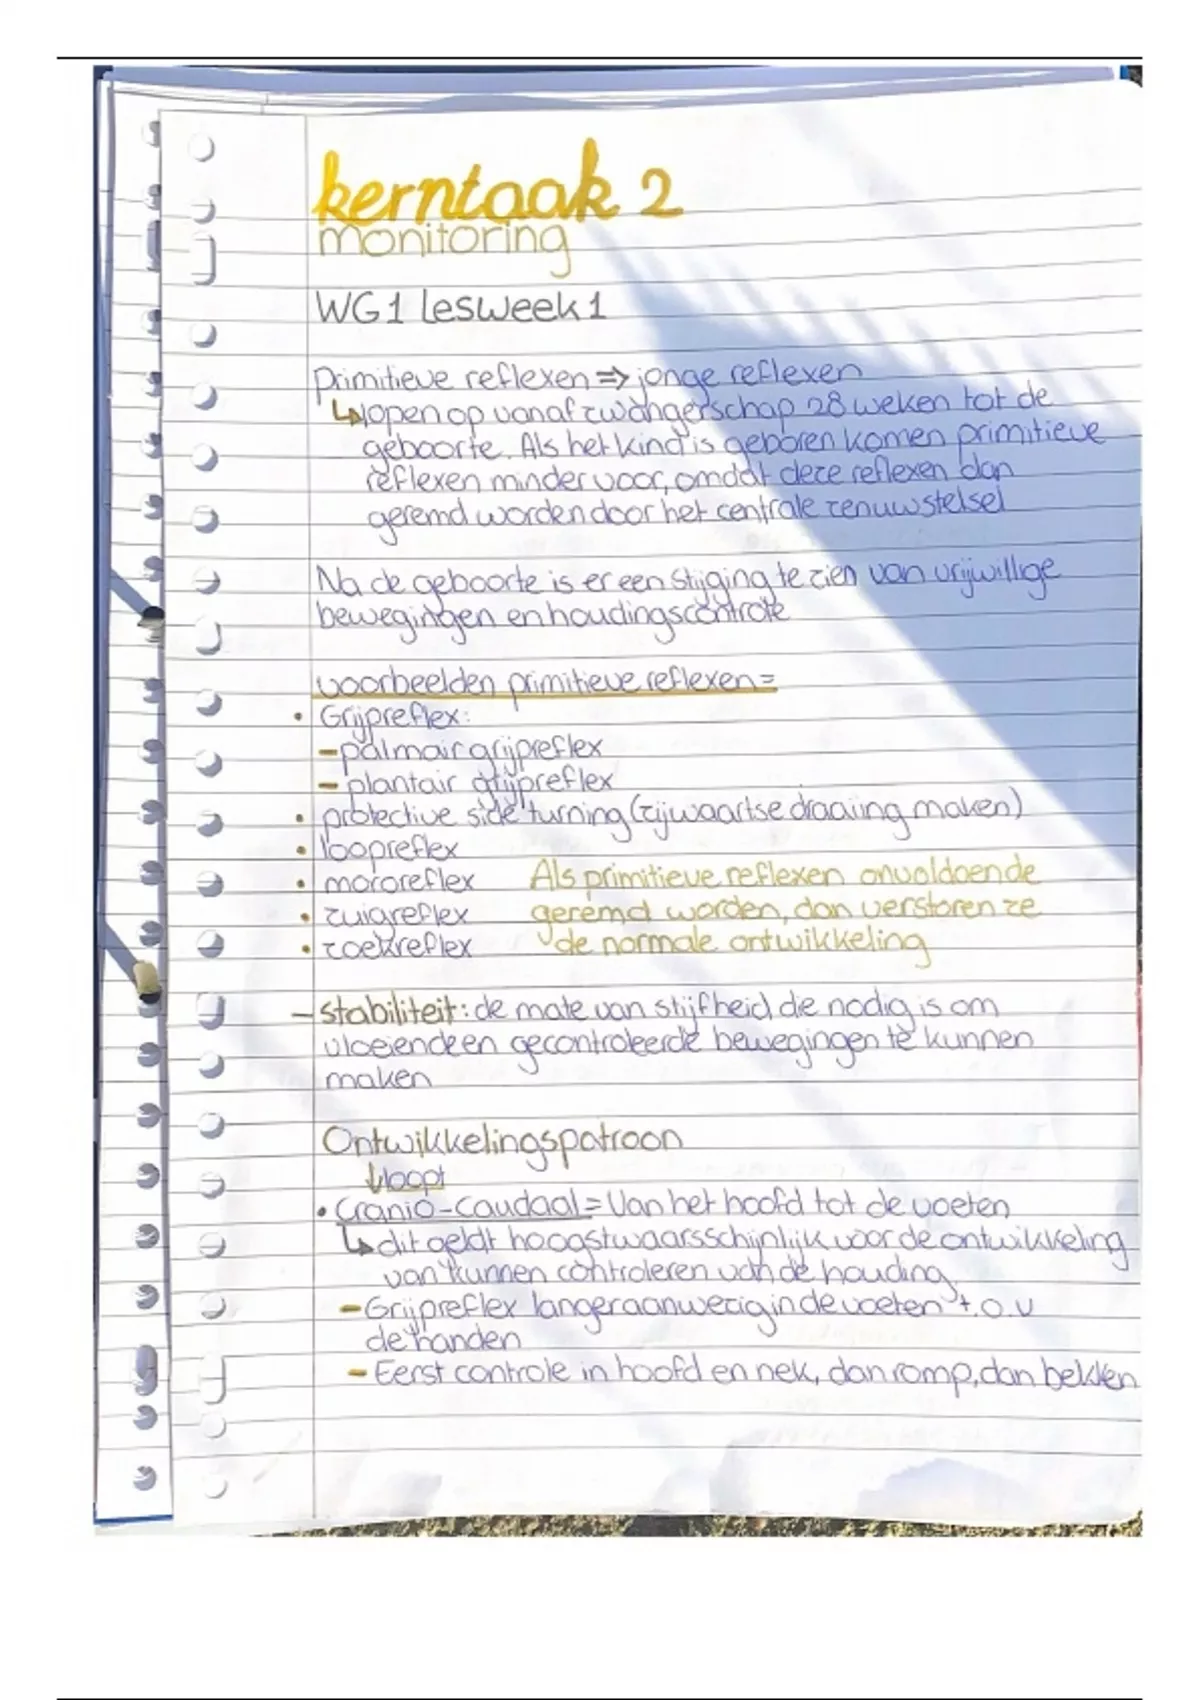 kerntaak 2
monitoring
WG1 lesweek 1
Primitieve reflexen => jonge reflexen
↳ lopen op vanaf zwangerschap 28 weken tot de
geboorte. Als het kind is geboren komen primitieve
reflexen minder voor, omdat deze reflexen dan
geremd worden door het centrale zenuwstelsel
Na de geboorte is er een stijging te zien van vrijwillige
bewegingen en houdingscontrole
voorbeelden primitieve reflexen =
• Grijpreflex:
- palmair grijpreflex
- plantair grijpreflex
• protective side turning (zijwaartse draaiing maken)
• loopreflex
• mororeflex
• zuigreflex
• zoekreflex
Als primitieve reflexen onvoldoende
geremd worden, dan verstoren ze
de normale ontwikkeling
- stabiliteit: de mate van stijfheid die nodig is om
vloeiende en gecontroleerde bewegingen te kunnen
maken
Ontwikkelingspatroon
↓ loopt
• Cranio-caudaal = Van het hoofd tot de voeten
↳ dit geldt hoogstwaarsschijnlijk voor de ontwikkeling
van kunnen controleren van de houding
- Grijpreflex langer aanwezig in de voeten t.o.v
de handen
- Eerst controle in hoofd en nek, dan romp, dan bekken